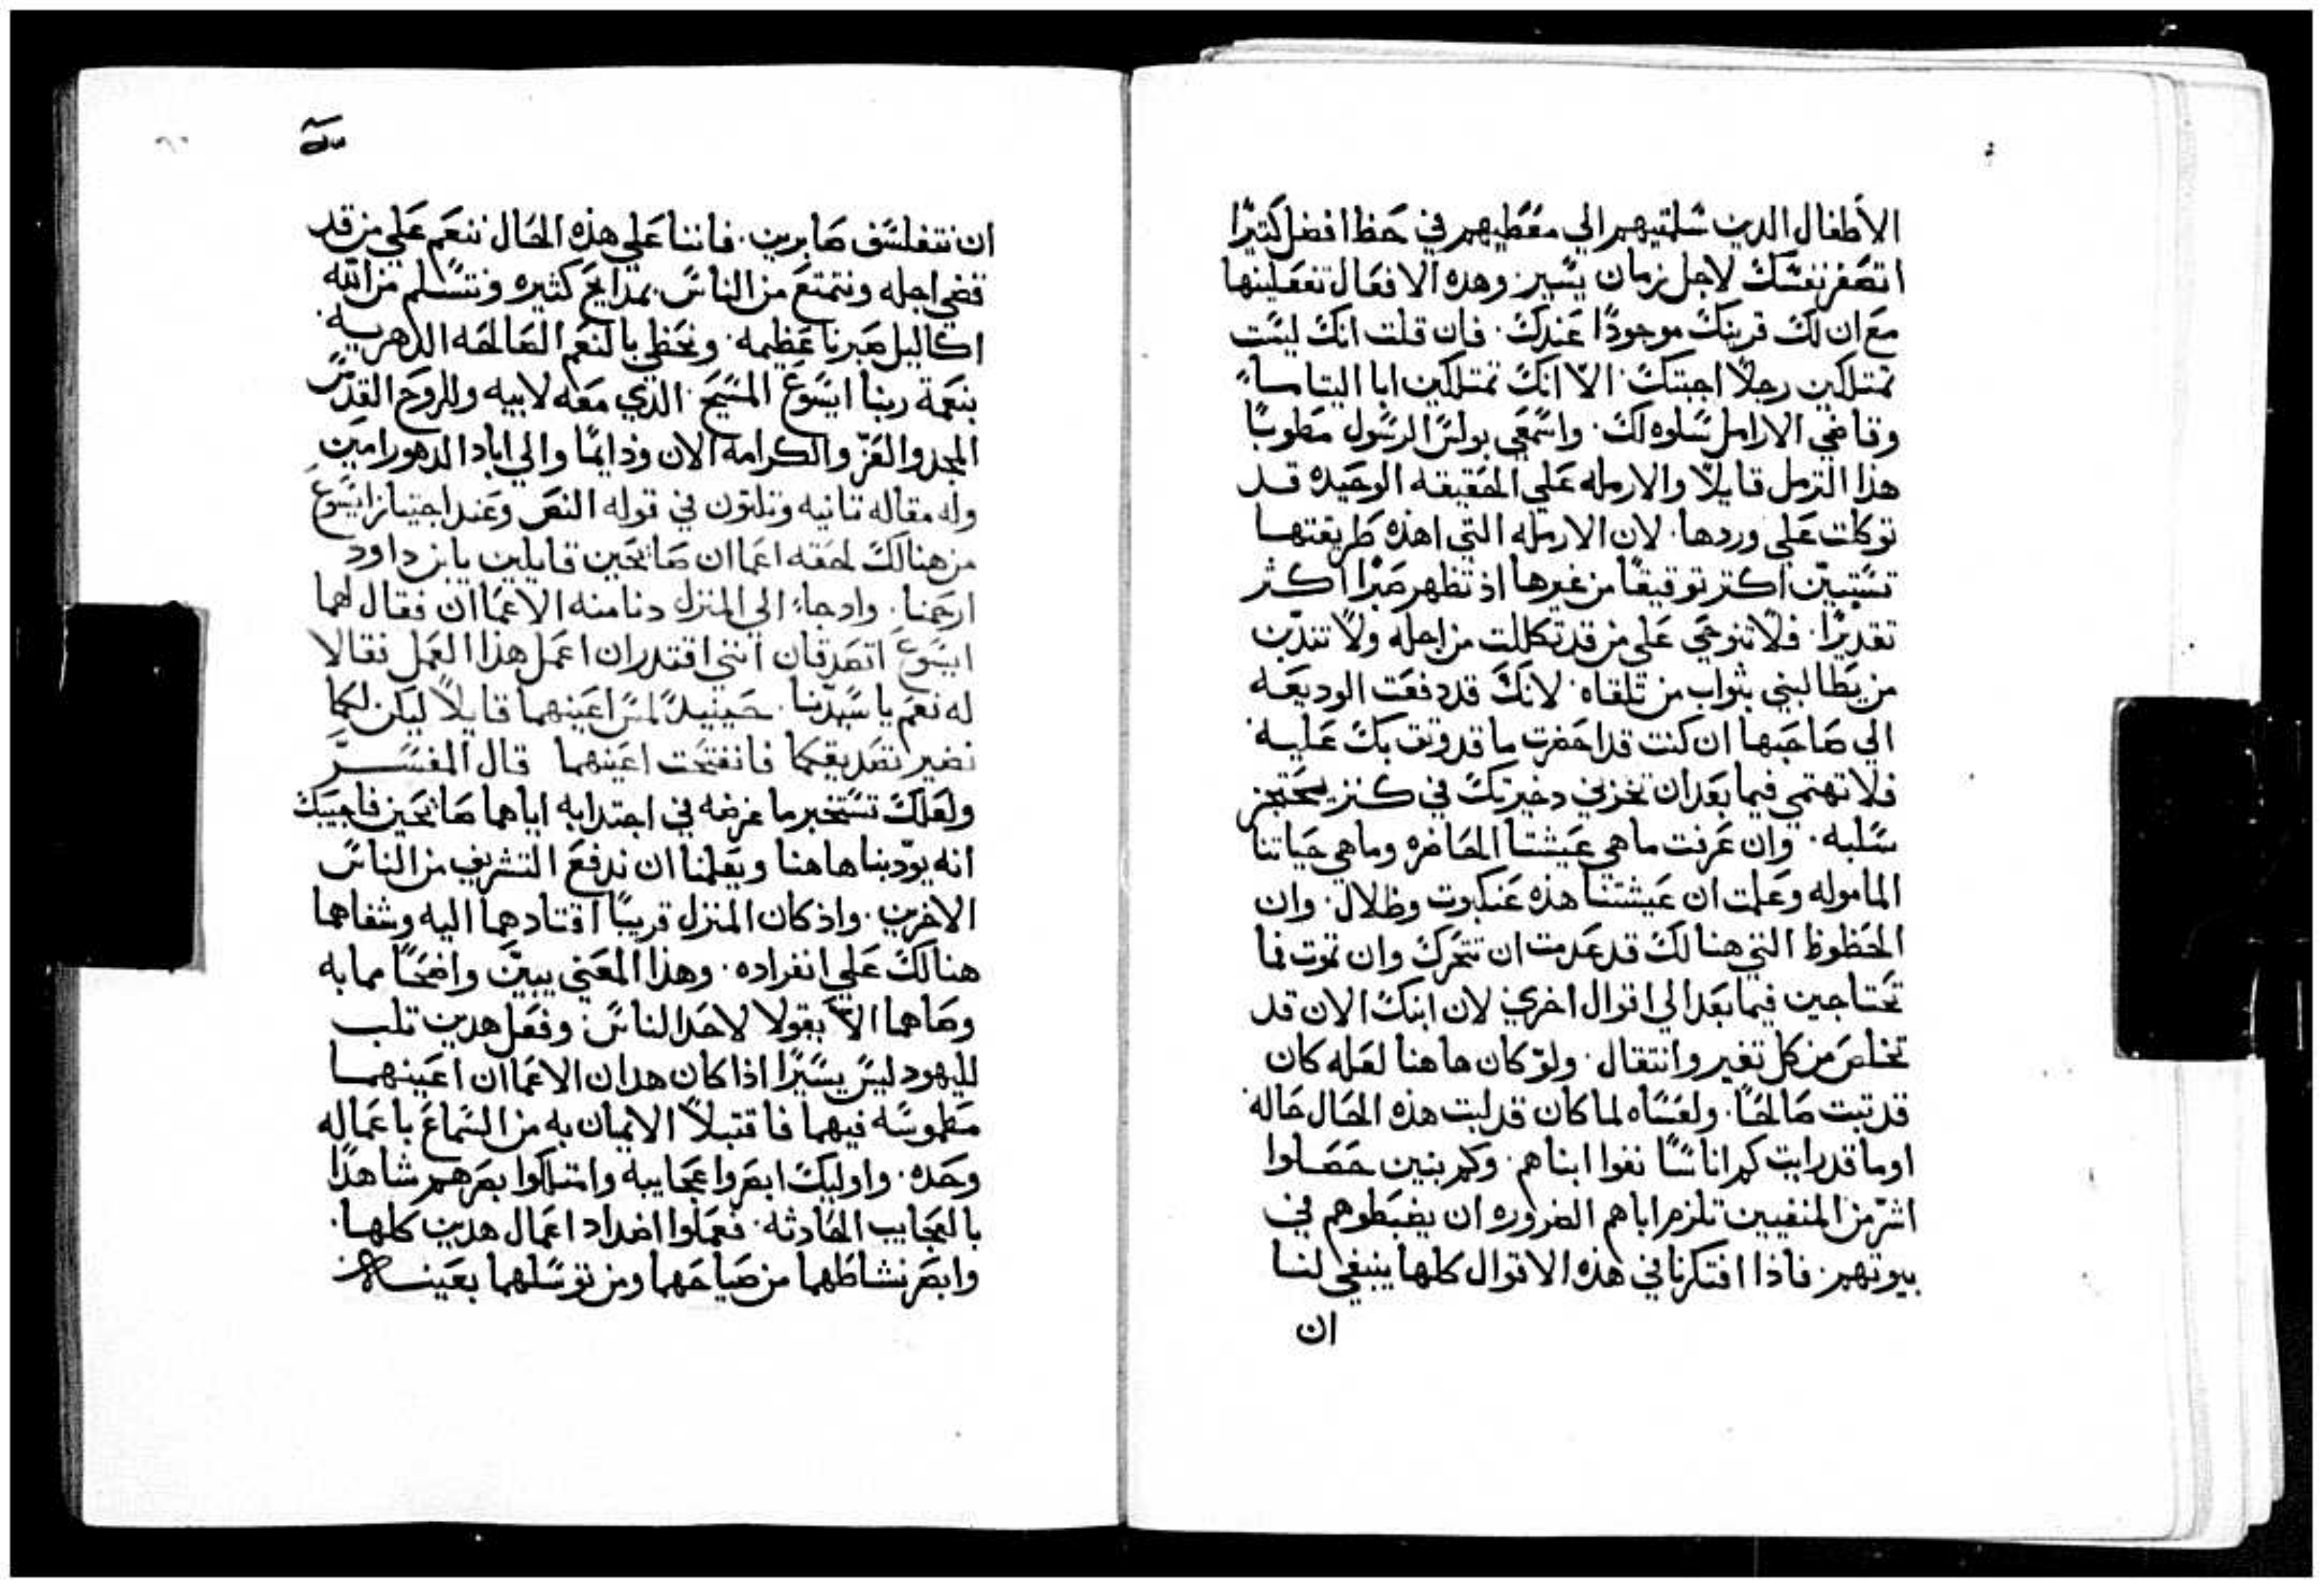 الأطفال الدين سلمتيهم الي معطيهم في حظ افضل كتيرًا
اتصغر نفسك لاجل زمان يسير وهده الافعال تفعلينها
مع ان لك قرينك موجودًا عندك. فان قلت انك ليست
تمتلكين رجلًا اجبتك. الا انك تمتلكين ابا اليتاما
وقاضي الارامل سلوه لك. واسمعي بولس الرسول مطوبًا
هذا الترمل قايلًا والارمله علي الحقيقه الوحيده قد
توكلت علي وردها. لان الارمله التي اهذه طريقتها
تستبين اكتر توقيفًا من غيرها اذ تظهر صبرًا اكثر
تقديرًا. فلا تنوحي علي من قد تكللت من اجله ولا تندبن
من يطالبني بثواب من تلقاه. لانك قد دفعت الوديعه
الي صاحبها ان كنت قد احضرت ما قد وثق بك عليه
فلا تهتمي فيما بعد ان تخزني دخيرتك في كنز يحتجز
سلبه. وان عرفت ما هي عيشتنا الحاضره وما هي حياتنا
الماموله وعلمت ان عيشتنا هذه عنكبوت وظلال. وان
الحظوظ التي هنالك قد عدمت ان تتحرك وان تموت فما
تحتاجين فيما بعد الي اقوال اخري. لان ابنك الان قد
تخلص من كل تغير وانتقال. ولو كان هاهنا لعله كان
قد تبت صالحًا. ولعساه لما كان قد لبت هذه الحال حاله
اوما قد رايت كم اناسًا نفوا ابناهم. وكم بنين حصلوا
اشر من المنفيين تلزم اباهم الضروره ان يضبطوهم في
بيوتهم. فاذا افتكرنا في هذه الاقوال كلها ينبغي لنا
ان
ان نتفلسف صابرين. فاننا علي هذه الحال ننعم علي من قد
قضي اجله ونتمتع من الناس بمدايح كثيره ونتسلم من الله
اكاليل صبرنا عظيمه. ونحظي بالنعم الصالحه الدهريه.
بنعمة ربنا ايسوع المسيح. الذي معه لابيه وللروح القدس
المجد والعز والكرامه الان ودايمًا والي اباد الدهور امين
وله مقاله تانيه وتلتون في قوله النص وعند اجتياز ايسوع
من هنالك لحقه اعماان صايحين قايلين يابن داود
ارحمنا. واد جاء الي المنزل دنا منه الاعماان فقال لهما
ايسوع اتصدقان انني اقتدر ان اعمل هذا العمل فقالا
له نعم يا سيدنا. حينيدٍ لمس اعينهما قايلًا ليكن لكما
نضير تصديقكما فانفتحت اعينهما قال المفسر
ولعلك تستخبر ما غرضه في اجتدابه اياهما صايحين فاجيبك
انه يودبنا هاهنا ويعلمنا ان ندفع التشريف من الناس
الاخرين. واذ كان المنزل قريبًا اقتادهما اليه وشفاهما
هنالك علي انفراده. وهذا المعني يبين واضحًا مما به
وصاهما الا يقولا لاحد الناس. وفعل هدين تلب
لليهود ليس يسيرًا اذا كان هدان الاعماان اعينهما
مطموسه فيهما فاقتبلا الايمان به من السماع باعماله
وحده. واوليك ابصروا عجايبه وامتلكوا بصرهم شاهدًا
بالعجايب الحادثه. فعملوا اضداد اعمال هدين كلها.
وابصر نشاطهما من صياحهما ومن توسلهما بعينه